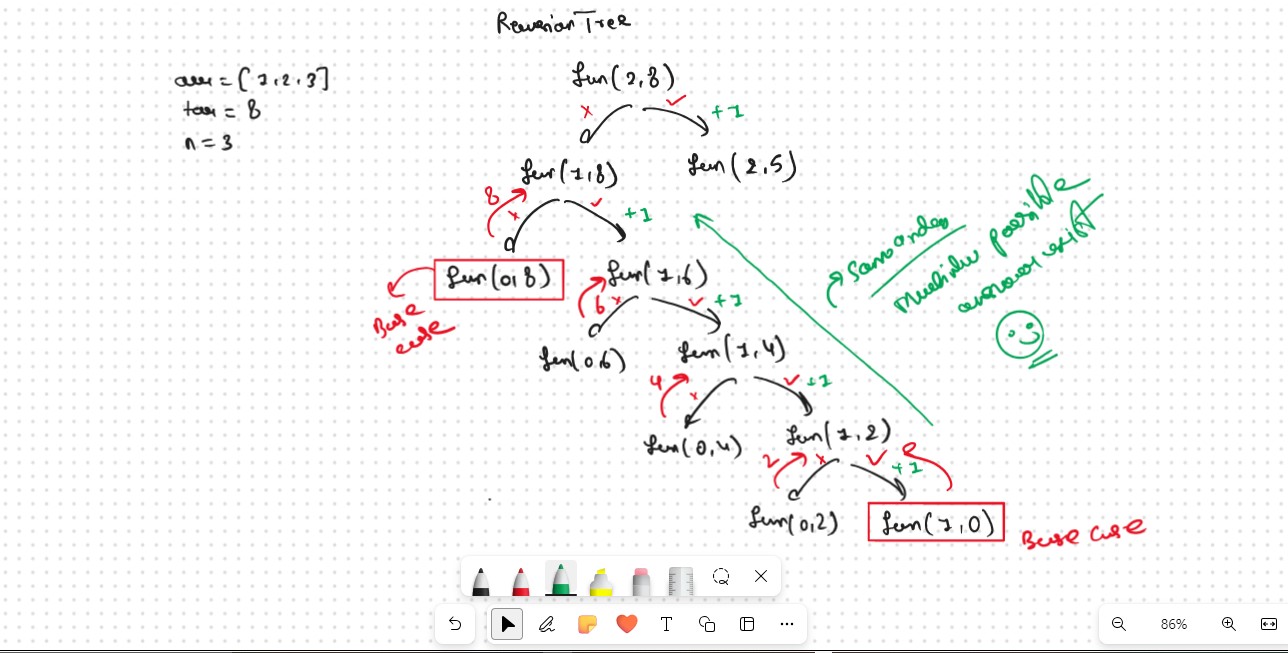 Recursion Tree
arr = [1,2,3]
tar = 8
n = 3
fun(2,8)
x ✓ +1
fun(1,8)
fun(2,5)
8 x ✓ +1
fun(0,8)
fun(1,6)
Base case
6 x ✓ +1
fun(0,6)
fun(1,4)
4 x ✓ +1
fun(0,4)
fun(1,2)
2 x ✓ +1
fun(0,2)
fun(1,0)
Base case
Same order
possible
answer exist
T
86%